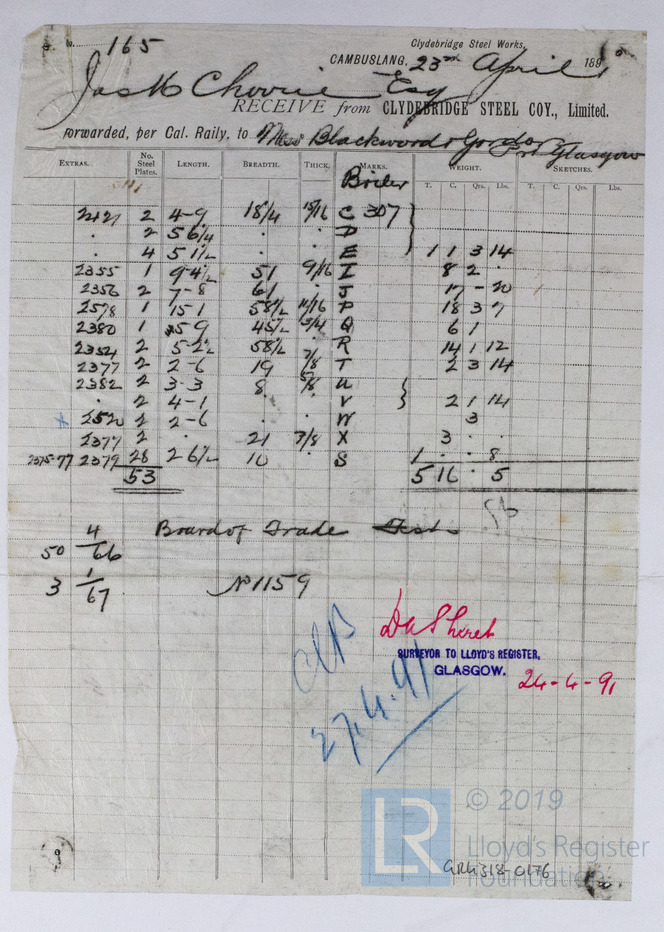 165
Clydebridge Steel Works,
CAMBUSLANG, 23rd April 1891
Esq
RECEIVE from CLYDEBRIDGE STEEL COY., Limited.
Forwarded, per Cal. Raily, to Mess Blackwood & Gordon
Pt Glasgow
EXTRAS. No. Steel Plates. LENGTH. BREADTH. THICK. MARKS. WEIGHT. SKETCHES.
T. C. Qrs. Lbs. T. C. Qrs. Lbs.
Boiler
2 4-9 18/4 15/16 C 307
. 2 5 6/4 . . D
. 4 5 1/2 . . E 1 1 3 14
2355 1 9-4/2 51 9/16 I 8 2 .
2356 2 7-8 61 . J 17 - 20
2578 1 15 1 58/2 11/16 P 18 3 7
2380 1 5 9 45/2 3/4 Q 6 1
2354 2 5-2/2 58/2 R 14 1 12
2377 2 2-6 19 7/8 T 2 3 14
2382 2 3-3 8 5/8 U
. 2 4-1 . . V 2 1 14
x 2520 2 2-6 . . W 3
2377 2 . 21 7/8 X 3 . .
2375-77 2379 28 2 6/2 10 . S 1 . . 8
53 5 16 . 5
4 Board of Trade Tests
50 66
1
3 67 No 1159
SURVEYOR TO LLOYD'S REGISTER,
GLASGOW.
24-4-91
27.4.91
LR © 2019
Lloyd's Register
Foundation
GRG318-0176
9